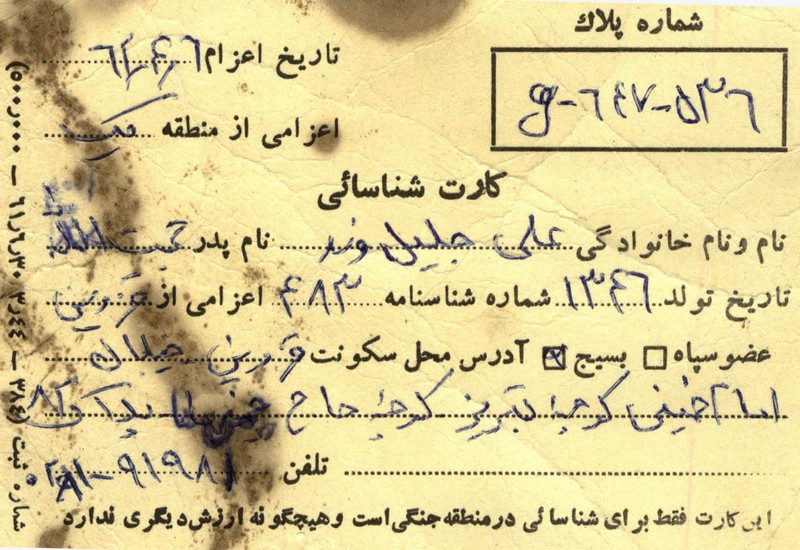 شماره پلاك
و-۶۴۷-۵۳۶
تاریخ اعزام ۶/۴/۶۱
اعزامی از منطقه یک
کارت شناسائی
نام ونام خانوادگی علی جلیل وند نام پدر حجت الله
تاریخ تولد ۱۳۴۶ شماره شناسنامه ۴۸۳ اعزامی از قزوین
عضوسپاه بسیج آدرس محل سکونت قزوین خیابان
امام خمینی کوچه تبریزی کوچه حاج پلاک
تلفن ۹۱۹۸۱
این کارت فقط برای شناسائی در منطقه جنگی است وهیچگونه ارزش دیگری ندارد
شماره ثبت (۳۸۴ – ۳٫۴۴ ۶۱٫۶٫۳۰ – ۵۰۰٫۰۰۰)